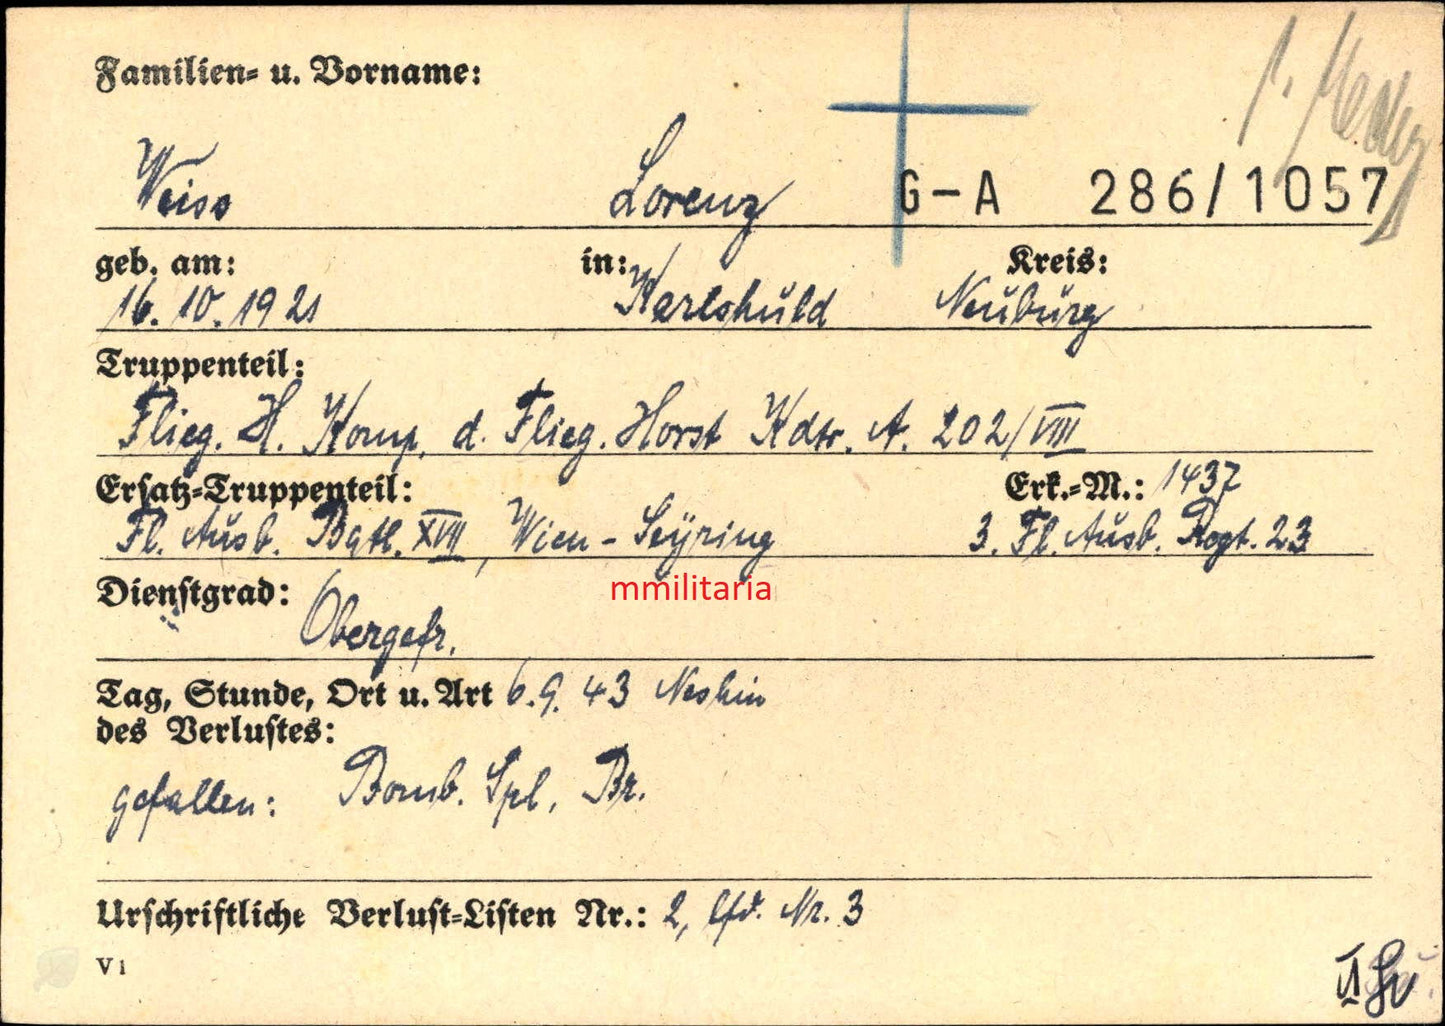 Familien- u. Vorname:
Weiss Lorenz G-A 286/1057
geb. am: in: Kreis:
16. 10. 1921 Karlshuld Neuburg
Truppenteil:
Flieg. H. Komp. d. Flieg. Horst Kdtr. A. 202/VIII
Ersatz-Truppenteil: Erk.-M.: 1437
Fl. Ausb. Bgtl. XVII, Wien-Seyring 3. Fl. Ausb. Regt. 23
mmilitaria
Dienstgrad:
Obergefr.
Tag, Stunde, Ort u. Art 6. 9. 43 Neshin
des Verlustes:
gefallen: Bomb. Spl. Br.
Urschriftliche Verlust-Listen Nr.: 2, lfd. Nr. 3
V 1